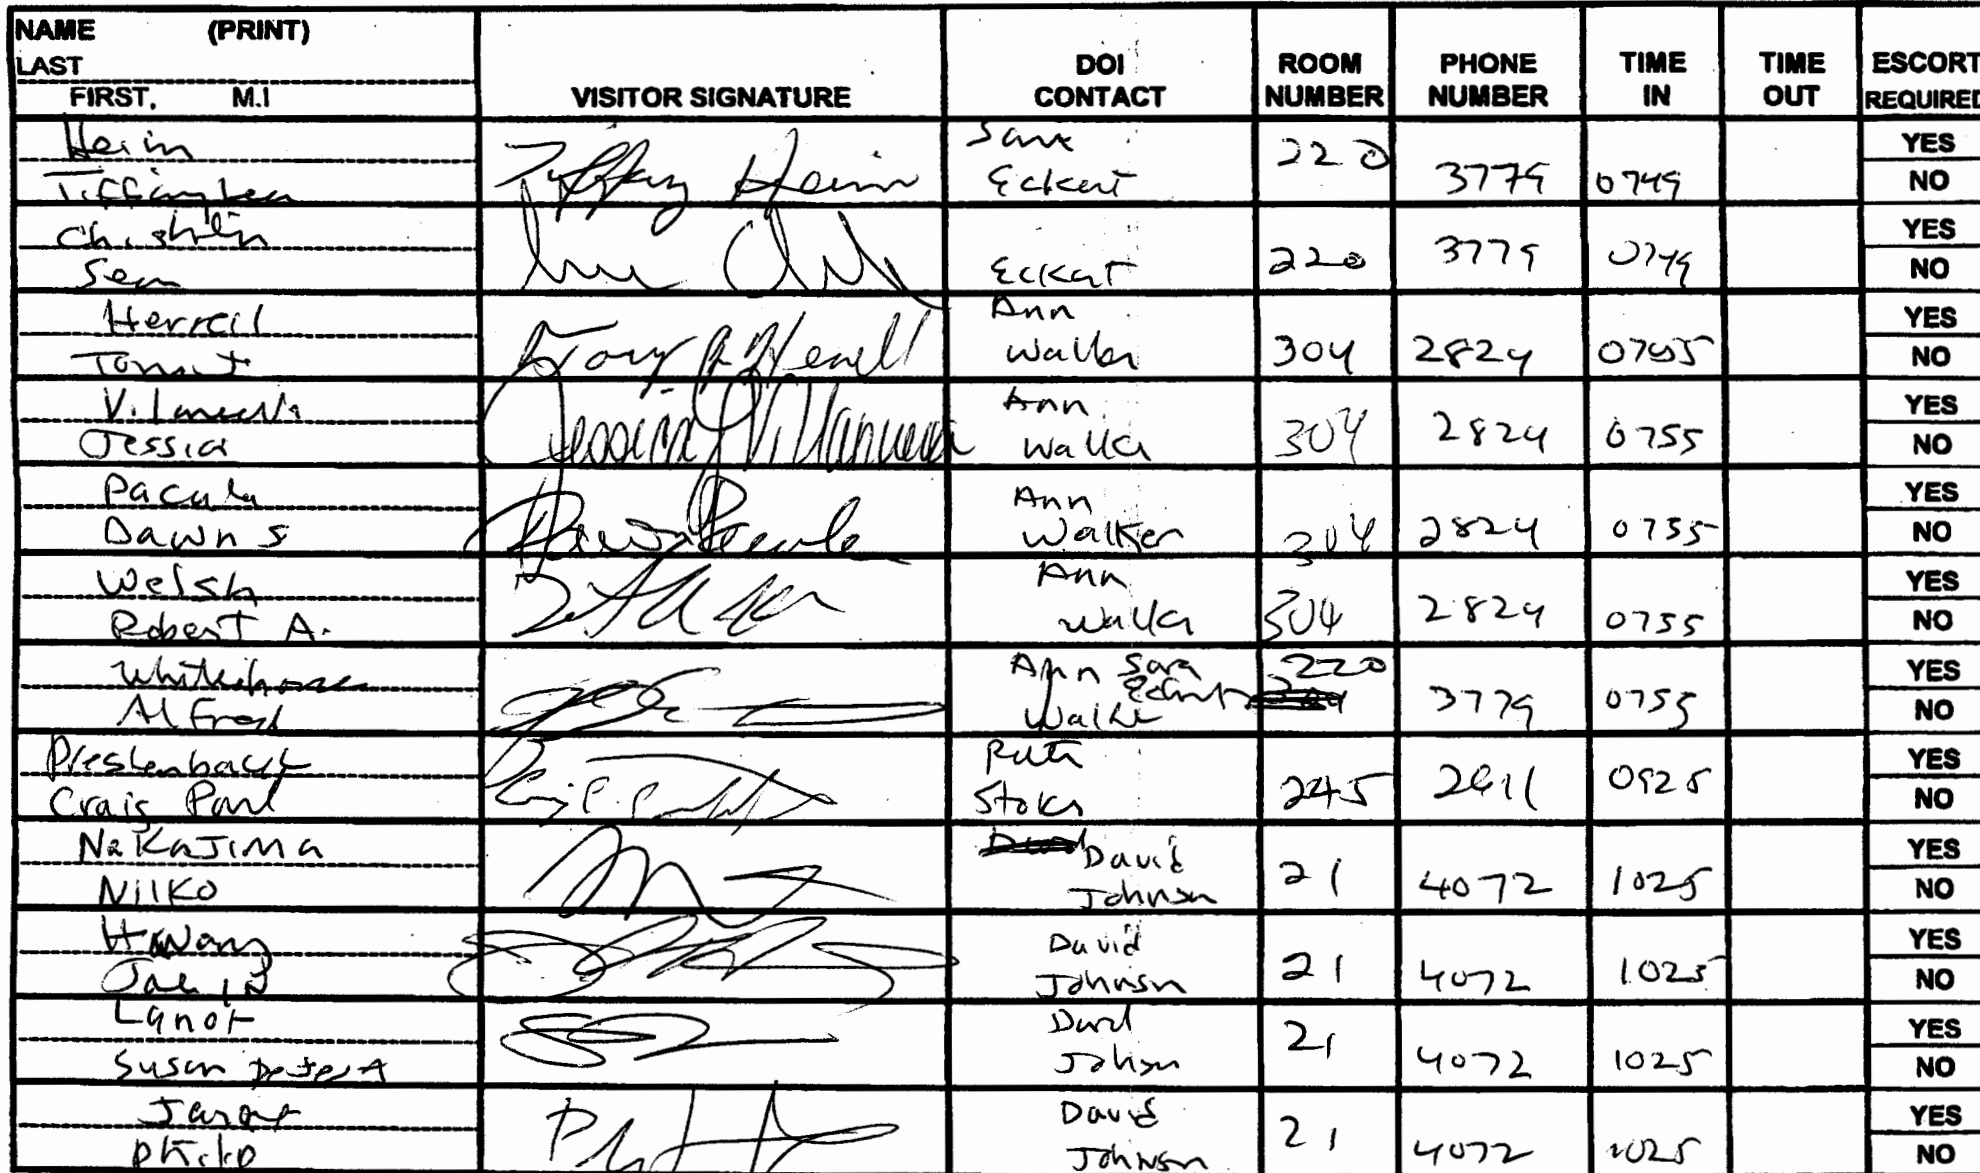 NAME (PRINT)
LAST
FIRST, M.I
VISITOR SIGNATURE
DOI CONTACT
ROOM NUMBER
PHONE NUMBER
TIME IN
TIME OUT
ESCORT REQUIRED
Heim
Tiffany Heim
Sara
Eckert
220
3779
0749
YES
NO
Sean
Eckert
220
3779
0749
YES
NO
Herrell
Tony
Ann
Walker
304
2824
YES
NO
Jessica
Jessica Villanueva
Ann
Walker
304
2824
0755
YES
NO
Pacula
Dawn S
Ann
Walker
304
2824
0755
YES
NO
Welsh
Robert A.
Ann
Walker
304
2824
0755
YES
NO
Whitehouse
Alfred
Ann Sara
Eckert
Walker
220
3779
0755
YES
NO
Craig Paul
Ruth
Stokes
245
0925
YES
NO
Nakajima
Niiko
David
Johnson
21
4072
1025
YES
NO
Hwang
David
Johnson
21
4072
1025
YES
NO
Susan
David
Johnson
21
4072
1025
YES
NO
David
Johnson
21
4072
1025
YES
NO